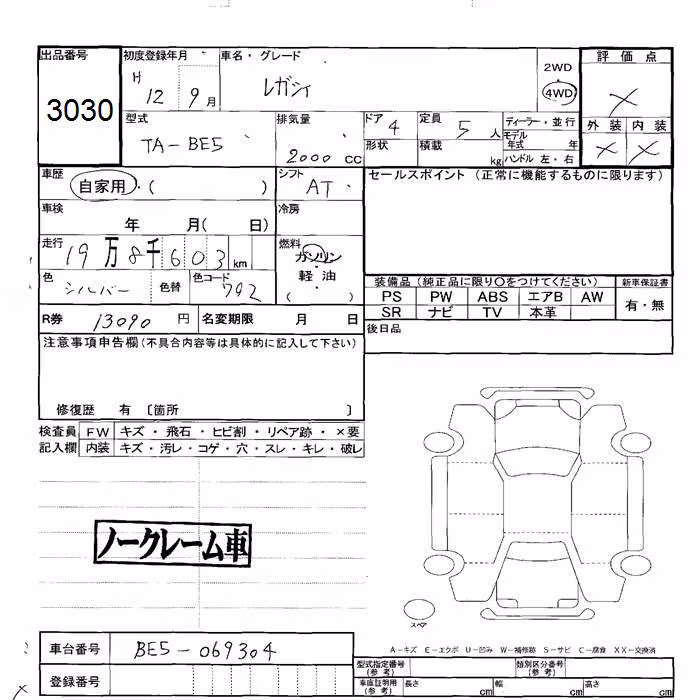 出品番号 初度登録年月 車名・グレード 評価点
H 12 9月 レガシィ 2WD・4WD ×
3030
型式 排気量 ドア 4 定員 5人 ディーラー・並行 外装 内装
TA-BE5 2000 cc 形状 積載 kg モデル年式 年 × ×
ハンドル 左・右
車歴 自家用・( ) シフト AT セールスポイント (正常に機能するものに限ります)
車検 年 月( 日) 冷房
走行 19万8千603km 燃料 ガソリン・軽油
( )
色 シルバー 色替 色コード 792 装備品 (純正品に限り○をつけてください) 新車保証書
PS PW ABS エアB AW 有・無
R券 13090円 名変期限 月 日 SR ナビ TV 本革
後日品
注意事項申告欄(不具合内容等は具体的に記入して下さい)
修復歴 有 〔箇所 〕
検査員 FW キズ・飛石・ヒビ割・リペア跡・×要
記入欄 内装 キズ・汚レ・コゲ・穴・スレ・キレ・破レ
ノークレーム車
スペア
A-キズ E-エクボ U-凹み W-補修跡 S-サビ C-腐食 XX-交換済
車台番号 BE5-069304
型式指定番号(参考) 類別区分番号(参考)
登録番号 車庫証明用(参考) 長さ cm 幅 cm 高さ cm
×